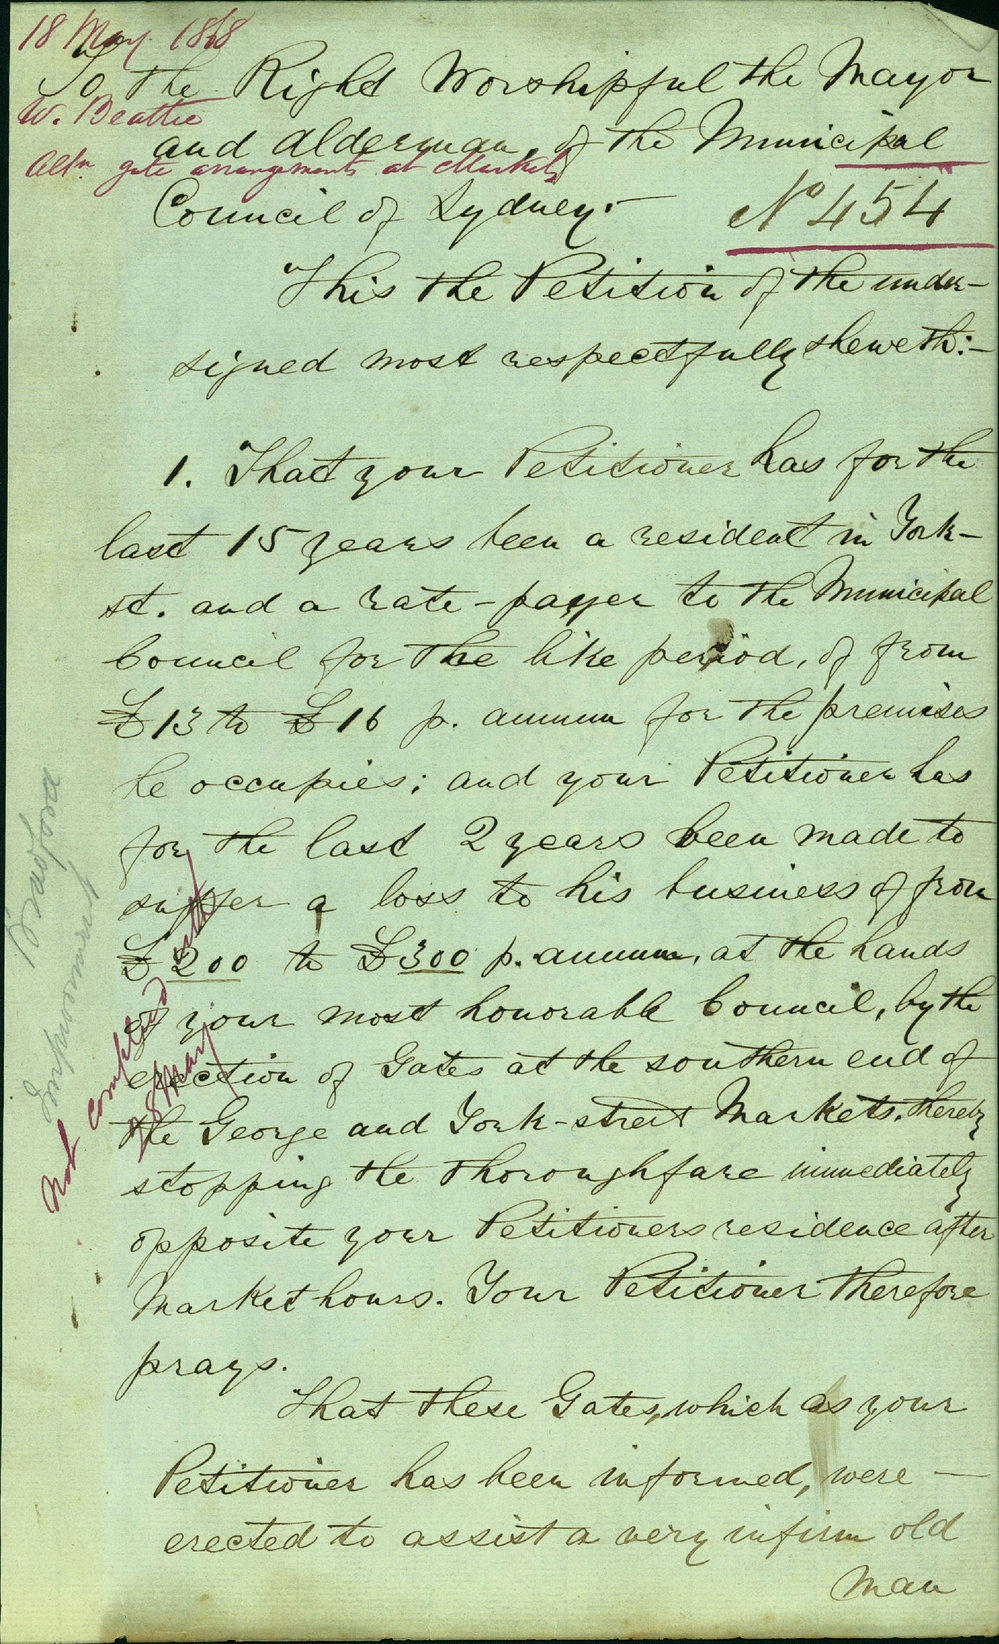 18 May 1868
To the Right Worshipful the Mayor
W. Beattie
and Alderman, of the Municipal
Altn gate arrangements at Markets
Council of Sydney:—
No 454
This the Petition of the under-
signed most respectfully sheweth:—
1. That your Petitioner has for the
last 15 years been a resident in York-
st. and a rate-payer to the Municipal
Council for the like period, of from
£13 to £16 p. annum for the premises
he occupies; and your Petitioner has
for the last 2 years been made to
suffer a loss to his business of from
£200 to £300 p. annum, at the hands
of your most honorable Council, by the
erection of Gates at the southern end of
the George and York-street Markets, thereby
stopping the thoroughfare immediately
opposite your Petitioners residence after
Market hours. Your Petitioner therefore
prays.
That these Gates, which as your
Petitioner has been informed, were —
erected to assist a very infirm old
man
Not complied with
28 May
Improvement